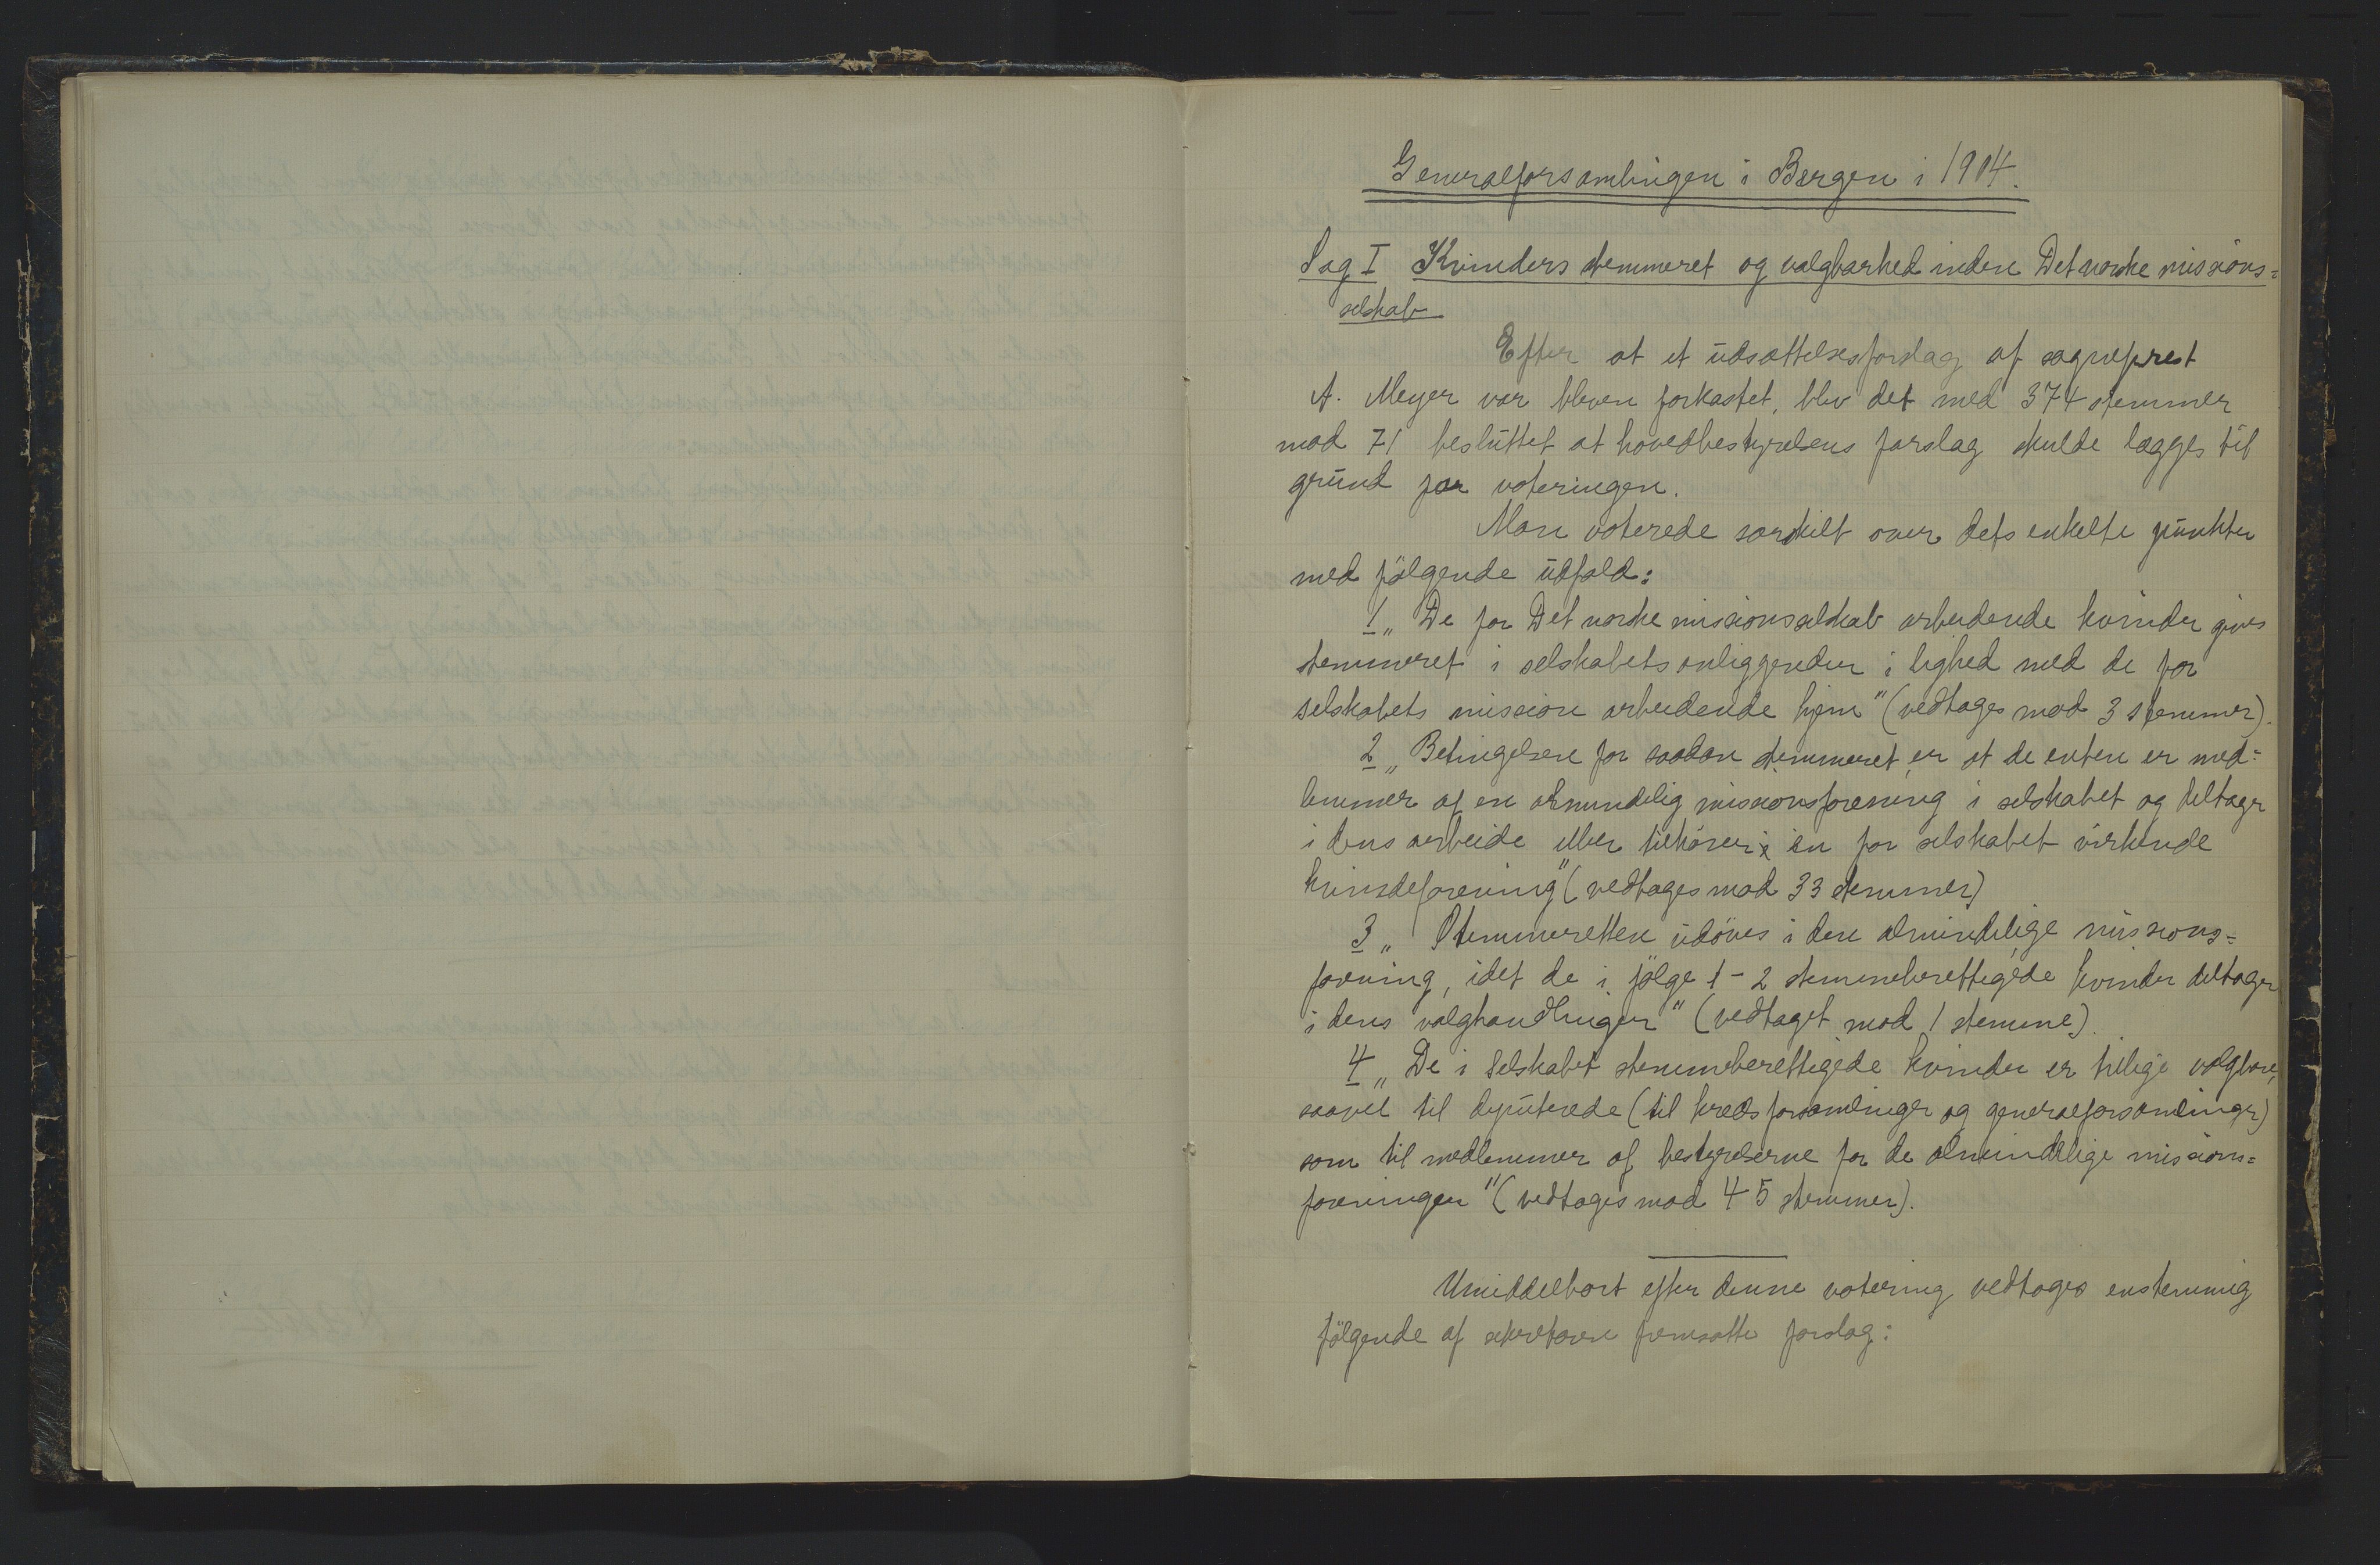 Generalforsamlingen i Bergen i 1904.
Sag I Kvinders stemmeret og valgbarhed inden Det norske missions=
selskab
Efter at et udsættelsesforslag af sogneprest
A. Meyer var bleven forkastet, blev det med 374 stemmer
mod 71 besluttet at hovedbestyrelsens forslag skulde lægges til
grund for voteringen.
Man voterede særskilt over dets enkelte punkter
med følgende udfald:
1 „ De for Det norske missionsselskab arbeidende kvinder gives
stemmeret i selskabets anliggender i lighed med de for
selskabets mission arbeidende hjem" (vedtages mod 3 stemmer).
2 „ Betingelsen for saadan stemmeret er at de enten er med=
lemmer af en almindelig missionsforening i selskabet og deltager
i dens arbeide eller tilhører en for selskabet virkende
kvindeforening" (vedtages mod 33 stemmer)
3 „ Stemmeretten udøves i den almindelige missions=
forening, idet de i følge 1-2 stemmeberettigede kvinder deltager
i dens valghandlinger" (vedtaget mod 1 stemme).
4 „ De i Selskabet stemmeberettigede kvinder er tillige valgbare,
saavel til deputerede (til kredsforsamlinger og generalforsamlinger)
som til medlemmer af bestyrelserne for de almindelige missions=
foreninger" (vedtages mod 45 stemmer).
Umiddelbart efter denne votering vedtages enstemmig
følgende af sekretæren fremsatte forslag: